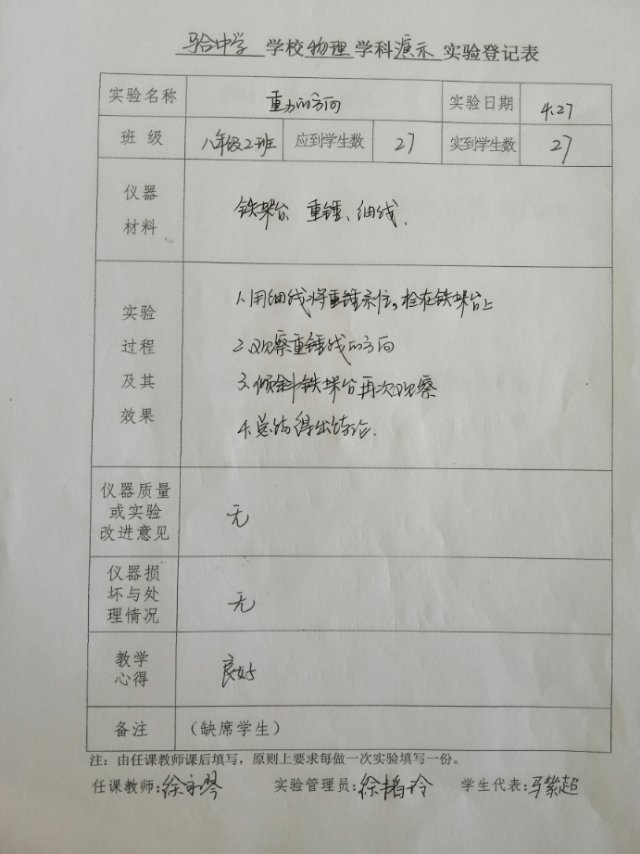 马合中学 学校 物理 学科 演示 实验登记表
实验名称 重力的方向 实验日期 4.27
班级 八年级2班 应到学生数 27 实到学生数 27
仪器
材料
铁架台 重锤、细线.
实验
过程
及其
效果
1.用细线将重锤系住,拴在铁架台上
2.观察重锤线的方向
3.倾斜铁架台再次观察
4.总结得出结论.
仪器质量
或实验
改进意见
无
仪器损
坏与处
理情况
无
教学
心得
良好
备注 （缺席学生）
注：由任课教师课后填写，原则上要求每做一次实验填写一份。
任课教师:徐 琴 实验管理员:徐 玲 学生代表:马 超